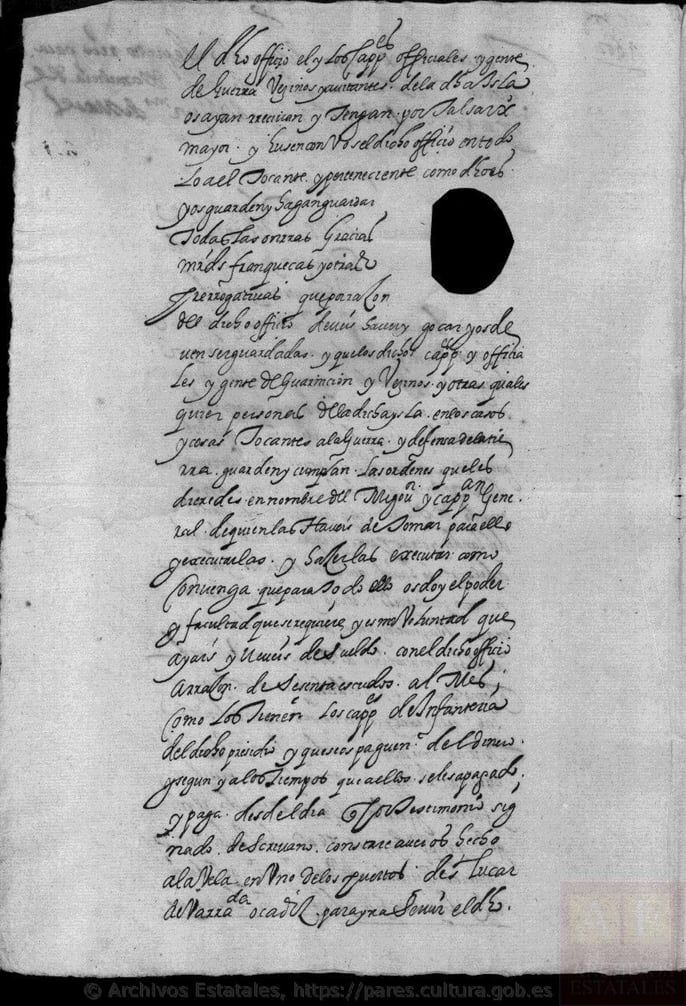 el dho officio el y los capp^es officiales y gente
de Guerra Vezinos y avitantes de la dha Isla
os ayan rrecivan y Tengan por Tal sarx^to
mayor y husen con Vos el dicho officio en todo
Lo a el Tocante y perteneciente como dho es
y os guarden y hagan guardar
Todas Las onrras Gracias
mrds franquecas y otras
Prerrogativas que por raçon
del dicho officio deveis haver y goçar y os de
ven ser guardadas y que los dichos capp^es y officia
Les y gente de Guarnicion y Vezinos y otras quales
quier personas de la dicha ysla en los casos
y cosas Tocantes a la Guerra y defensa de la tie
rra guarden y cumplan Las ordenes que les
dieredes en nombre del Mi gou^or y capp^an Gene
ral de quien las Haveis de Tomar para ello
y executarlas y hazerlas executar como
Convenga que para Todo ello os doy el poder
y facultad que se requiere y es mi Voluntad que
ayais y lleveis de sueldo con el dicho officio
a rraçon de sesenta escudos al Mes
Como Los Tienen Los capp^es de Infanteria
del dicho presidio y que se os paguen del dinero
y segun y a los Tiempos que a ellos se les a pagado
y paga desde el dia q Por Testimonio sig
nado de Scrivano constare averos hecho
a la Vela en Uno de los puertos de s^t Lucar
de Varrameda o cadiz para yr a Servir el dho